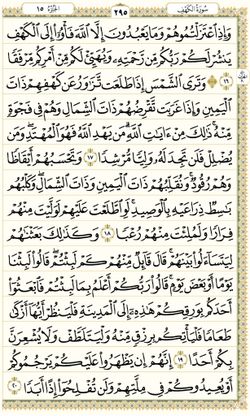 سورة الكهف ٢٩٥ الجزء ١٥
وَإِذِ ٱعْتَزَلْتُمُوهُمْ وَمَا يَعْبُدُونَ إِلَّا ٱللَّهَ فَأْوُۥٓا۟ إِلَى ٱلْكَهْفِ
يَنشُرْ لَكُمْ رَبُّكُم مِّن رَّحْمَتِهِۦ وَيُهَيِّئْ لَكُم مِّنْ أَمْرِكُم مِّرْفَقًا
١٦ وَتَرَى ٱلشَّمْسَ إِذَا طَلَعَت تَّزَٰوَرُ عَن كَهْفِهِمْ ذَاتَ
ٱلْيَمِينِ وَإِذَا غَرَبَت تَّقْرِضُهُمْ ذَاتَ ٱلشِّمَالِ وَهُمْ فِى فَجْوَةٍ
مِّنْهُ ذَٰلِكَ مِنْ ءَايَٰتِ ٱللَّهِ مَن يَهْدِ ٱللَّهُ فَهُوَ ٱلْمُهْتَدِ وَمَن
يُضْلِلْ فَلَن تَجِدَ لَهُۥ وَلِيًّا مُّرْشِدًا ١٧ وَتَحْسَبُهُمْ أَيْقَاظًا
وَهُمْ رُقُودٌ وَنُقَلِّبُهُمْ ذَاتَ ٱلْيَمِينِ وَذَاتَ ٱلشِّمَالِ وَكَلْبُهُم
بَٰسِطٌ ذِرَاعَيْهِ بِٱلْوَصِيدِ لَوِ ٱطَّلَعْتَ عَلَيْهِمْ لَوَلَّيْتَ مِنْهُمْ
فِرَارًا وَلَمُلِئْتَ مِنْهُمْ رُعْبًا ١٨ وَكَذَٰلِكَ بَعَثْنَٰهُمْ
لِيَتَسَآءَلُوا۟ بَيْنَهُمْ قَالَ قَآئِلٌ مِّنْهُمْ كَمْ لَبِثْتُمْ قَالُوا۟ لَبِثْنَا
يَوْمًا أَوْ بَعْضَ يَوْمٍ قَالُوا۟ رَبُّكُمْ أَعْلَمُ بِمَا لَبِثْتُمْ فَٱبْعَثُوٓا۟
أَحَدَكُم بِوَرِقِكُمْ هَٰذِهِۦٓ إِلَى ٱلْمَدِينَةِ فَلْيَنظُرْ أَيُّهَآ أَزْكَىٰ
طَعَامًا فَلْيَأْتِكُم بِرِزْقٍ مِّنْهُ وَلْيَتَلَطَّفْ وَلَا يُشْعِرَنَّ
بِكُمْ أَحَدًا ١٩ إِنَّهُمْ إِن يَظْهَرُوا۟ عَلَيْكُمْ يَرْجُمُوكُمْ
أَوْ يُعِيدُوكُمْ فِى مِلَّتِهِمْ وَلَن تُفْلِحُوٓا۟ إِذًا أَبَدًا ٢٠